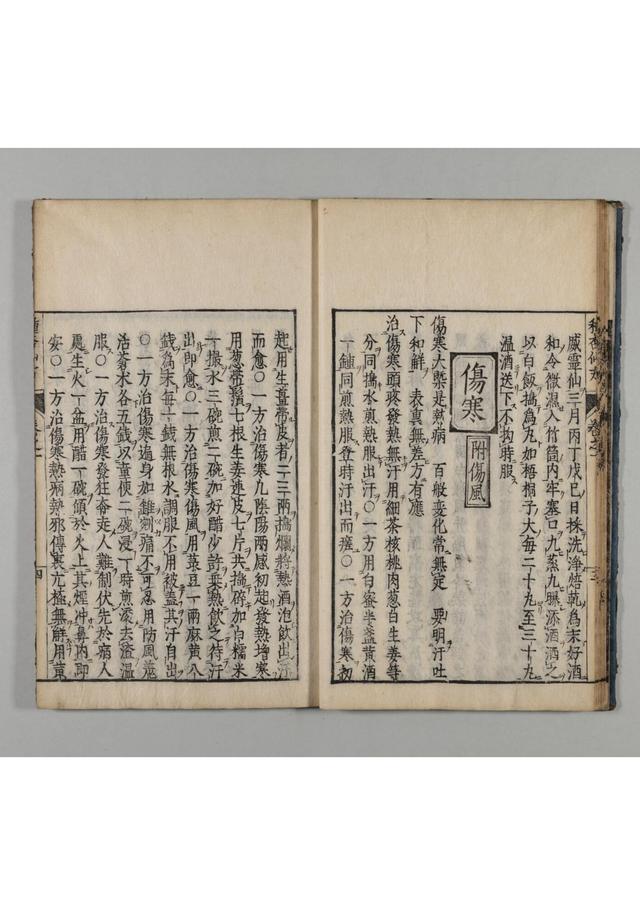 威靈仙三月丙丁戊巳日採洗淨焙乾爲末好酒
和令微濕入竹筒内牢塞口九蒸九曝添酒洒之
以白飯搗爲丸如梧桐子大每二十九至三十九
温酒送下不拘時服
傷寒
附傷風
傷寒大槩是熱病 百般變化常無定 要明汗吐
下和鮮 表真無差方有應
治傷寒頭疼發熱無汗用細茶核桃肉葱白生姜等
分同擣水煎熱服出汗〇一方用白蜜半盞黄酒
一鍾同煎熱服登時汗出而痊〇一方治傷寒初
起用生薑帶皮者二三兩搗爛將熱酒泡飲出汗
而愈〇一方治傷寒九陰陽兩感初起發熱增寒
用葱帶鬚七根生姜連皮七片共搗碎加白糯米
一撮水三碗煎二碗加好醋少許乗熱飲之待汗
出即愈〇一方治傷寒傷風用菉豆一兩麻黄八
錢爲末每一錢無根水調服不用被盖其汗自出
〇一方治傷寒遍身如錐劄痛不可忍用防風羗
活蒼术各五錢以童便二碗浸一時煎滚去渣温
服〇一方治傷寒發狂奔走人難制伏先於病人
處生火一盆用醋一碗傾於火上其煙冲鼻内即
安〇一方治傷寒熱病熱邪傳裏亢極無鮮用
卷之一
三
卷之一
四